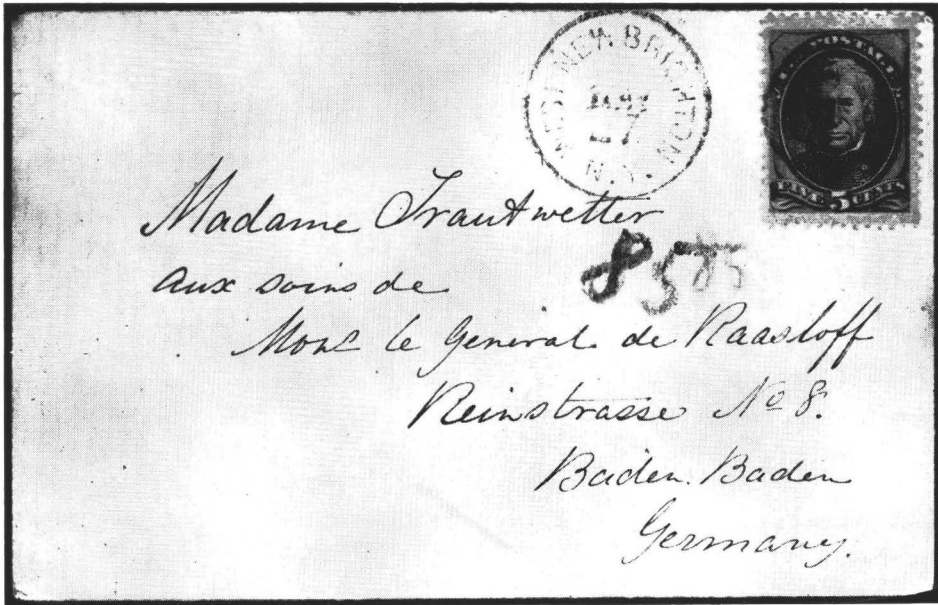 WEST NEW BRIGHTON
N.Y.
27
U.S. POSTAGE
FIVE 5 CENTS
Madame Trautwetter
aux soins de
Monc le Général de Raasloff
Reinstrasse No 8.
Baden. Baden
Germany.